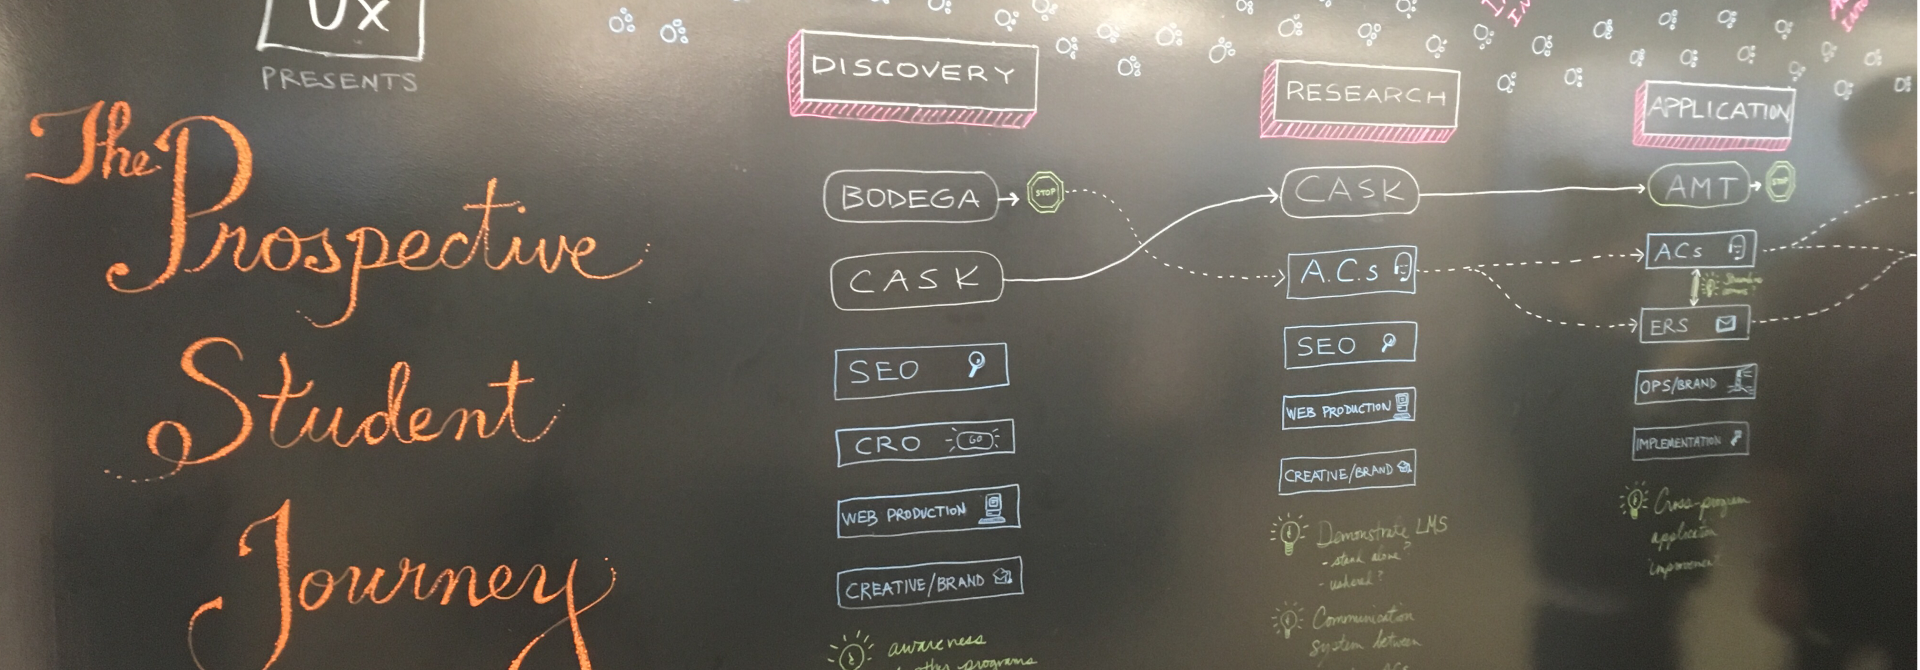 UX
PRESENTS
The
Prospective
Student
Journey
DISCOVERY
BODEGA
STOP
CASK
SEO
CRO
GO
WEB PRODUCTION
CREATIVE/BRAND
awareness
other programs
RESEARCH
CASK
A.C.s
SEO
WEB PRODUCTION
CREATIVE/BRAND
Demonstrate LMS
- stand alone?
- ushered?
Communication
system between
ACs
APPLICATION
AMT
STOP
ACs
ERS
OPS/BRAND
IMPLEMENTATION
Cross-program
application
improvement